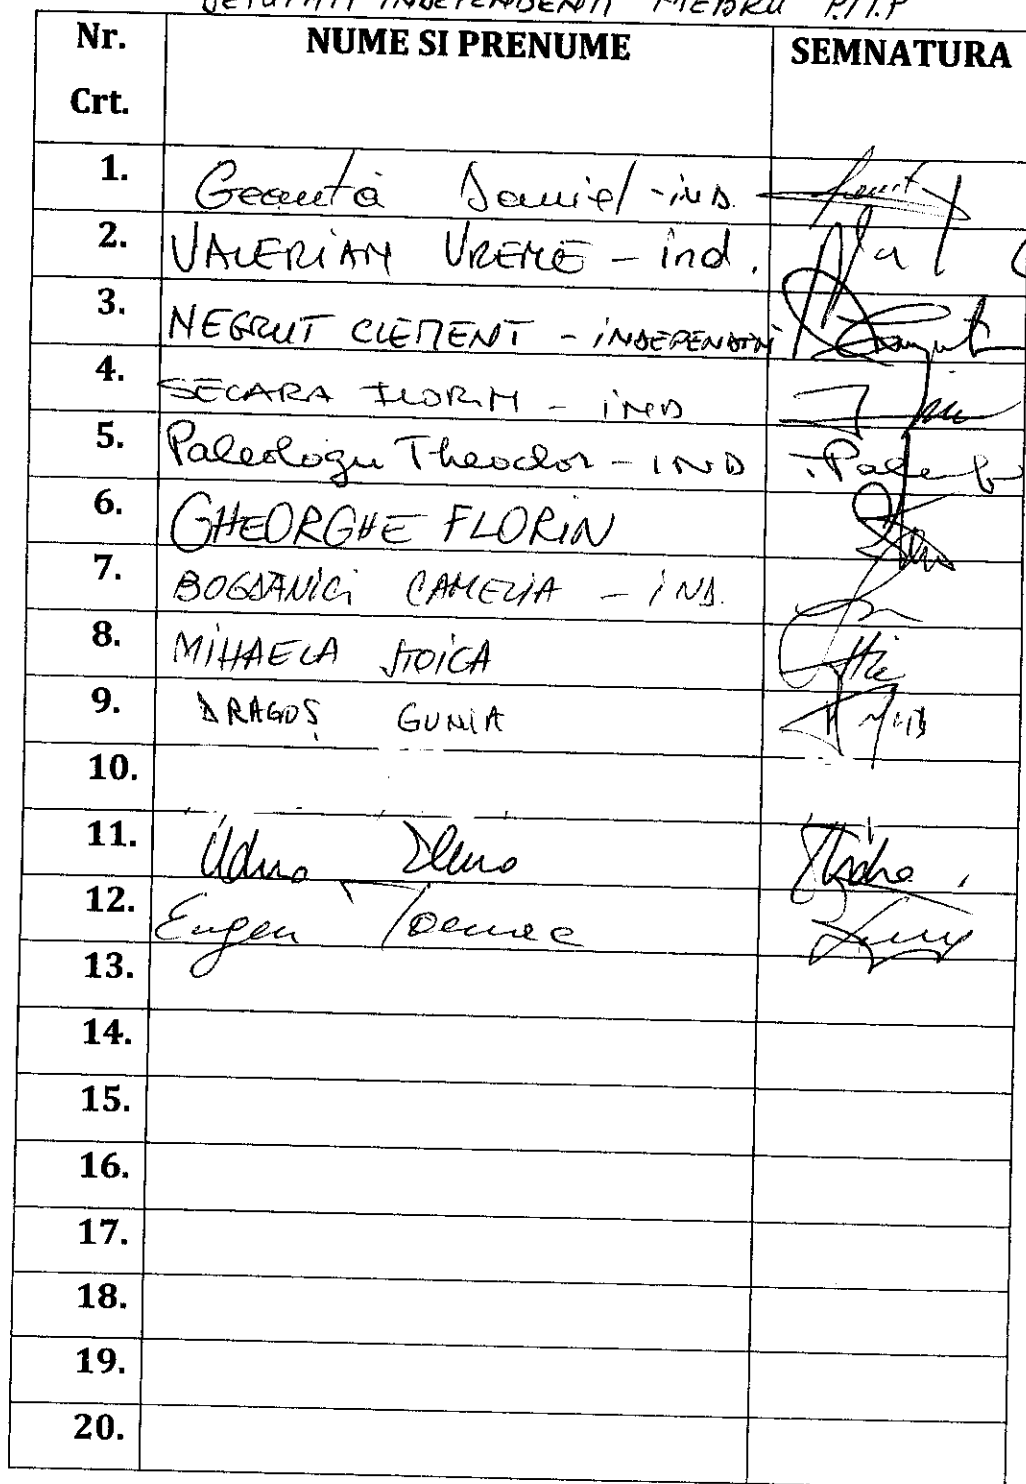 DEPUTATI INDEPENDENTI MEMBRII P.M.P
Nr. Crt. NUME SI PRENUME SEMNATURA
1. Geantă Daniel - IND.
2. VALERIAN VREME - ind.
3. NEGRUT CLEMENT - INDEPENDENT
4. SECARA FLORIN - IND
5. Paleologu Theodor - IND T. Paleologu
6. GHEORGHE FLORIN
7. BOGDANICI CAMELIA - IND.
8. MIHAELA STOICA
9. DRAGOȘ GUNIA
10.
11. Udrea Elena Udrea
12. Eugen Tomac
13.
14.
15.
16.
17.
18.
19.
20.